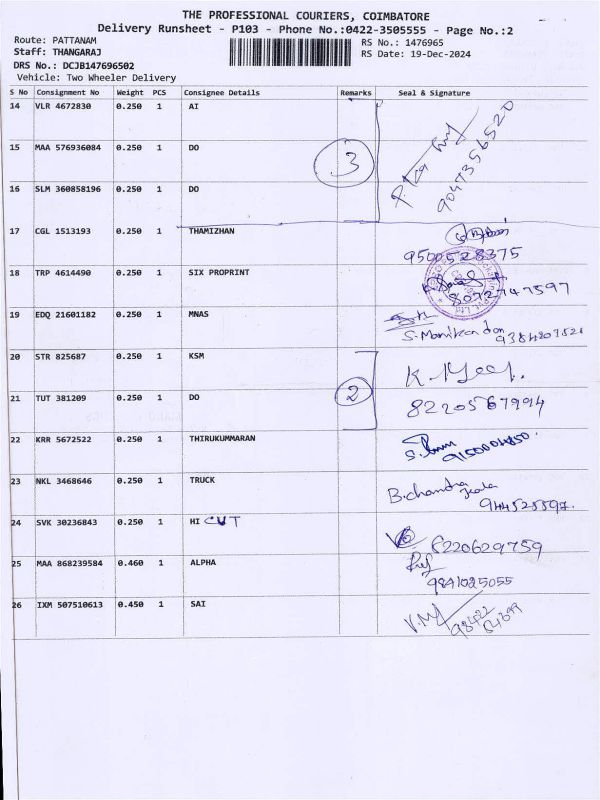 THE PROFESSIONAL COURIERS, COIMBATORE
Delivery Runsheet - P103 - Phone No.:0422-3505555 - Page No.:2
Route: PATTANAM RS No.: 1476965
Staff: THANGARAJ RS Date: 19-Dec-2024
DRS No.: DCJB147696502
Vehicle: Two Wheeler Delivery
S No Consignment No Weight PCS Consignee Details Remarks Seal & Signature
14 VLR 4672830 0.250 1 AI
15 MAA 576936084 0.250 1 DO 3
16 SLM 360858196 0.250 1 DO 9047356520
17 CGL 1513193 0.250 1 THAMIZHAN
9500528375
18 TRP 4614490 0.250 1 SIX PROPRINT
8072747597
19 EDQ 21601182 0.250 1 MNAS
S. Manikandan
20 STR 825687 0.250 1 KSM
21 TUT 381209 0.250 1 DO 2 8220567994
22 KRR 5672522 0.250 1 THIRUKUMMARAN
23 NKL 3468646 0.250 1 TRUCK
B. chandra
24 SVK 30236843 0.250 1 HI CUT
8220629759
25 MAA 868239584 0.460 1 ALPHA
9841025055
26 IXM 507510613 0.450 1 SAI